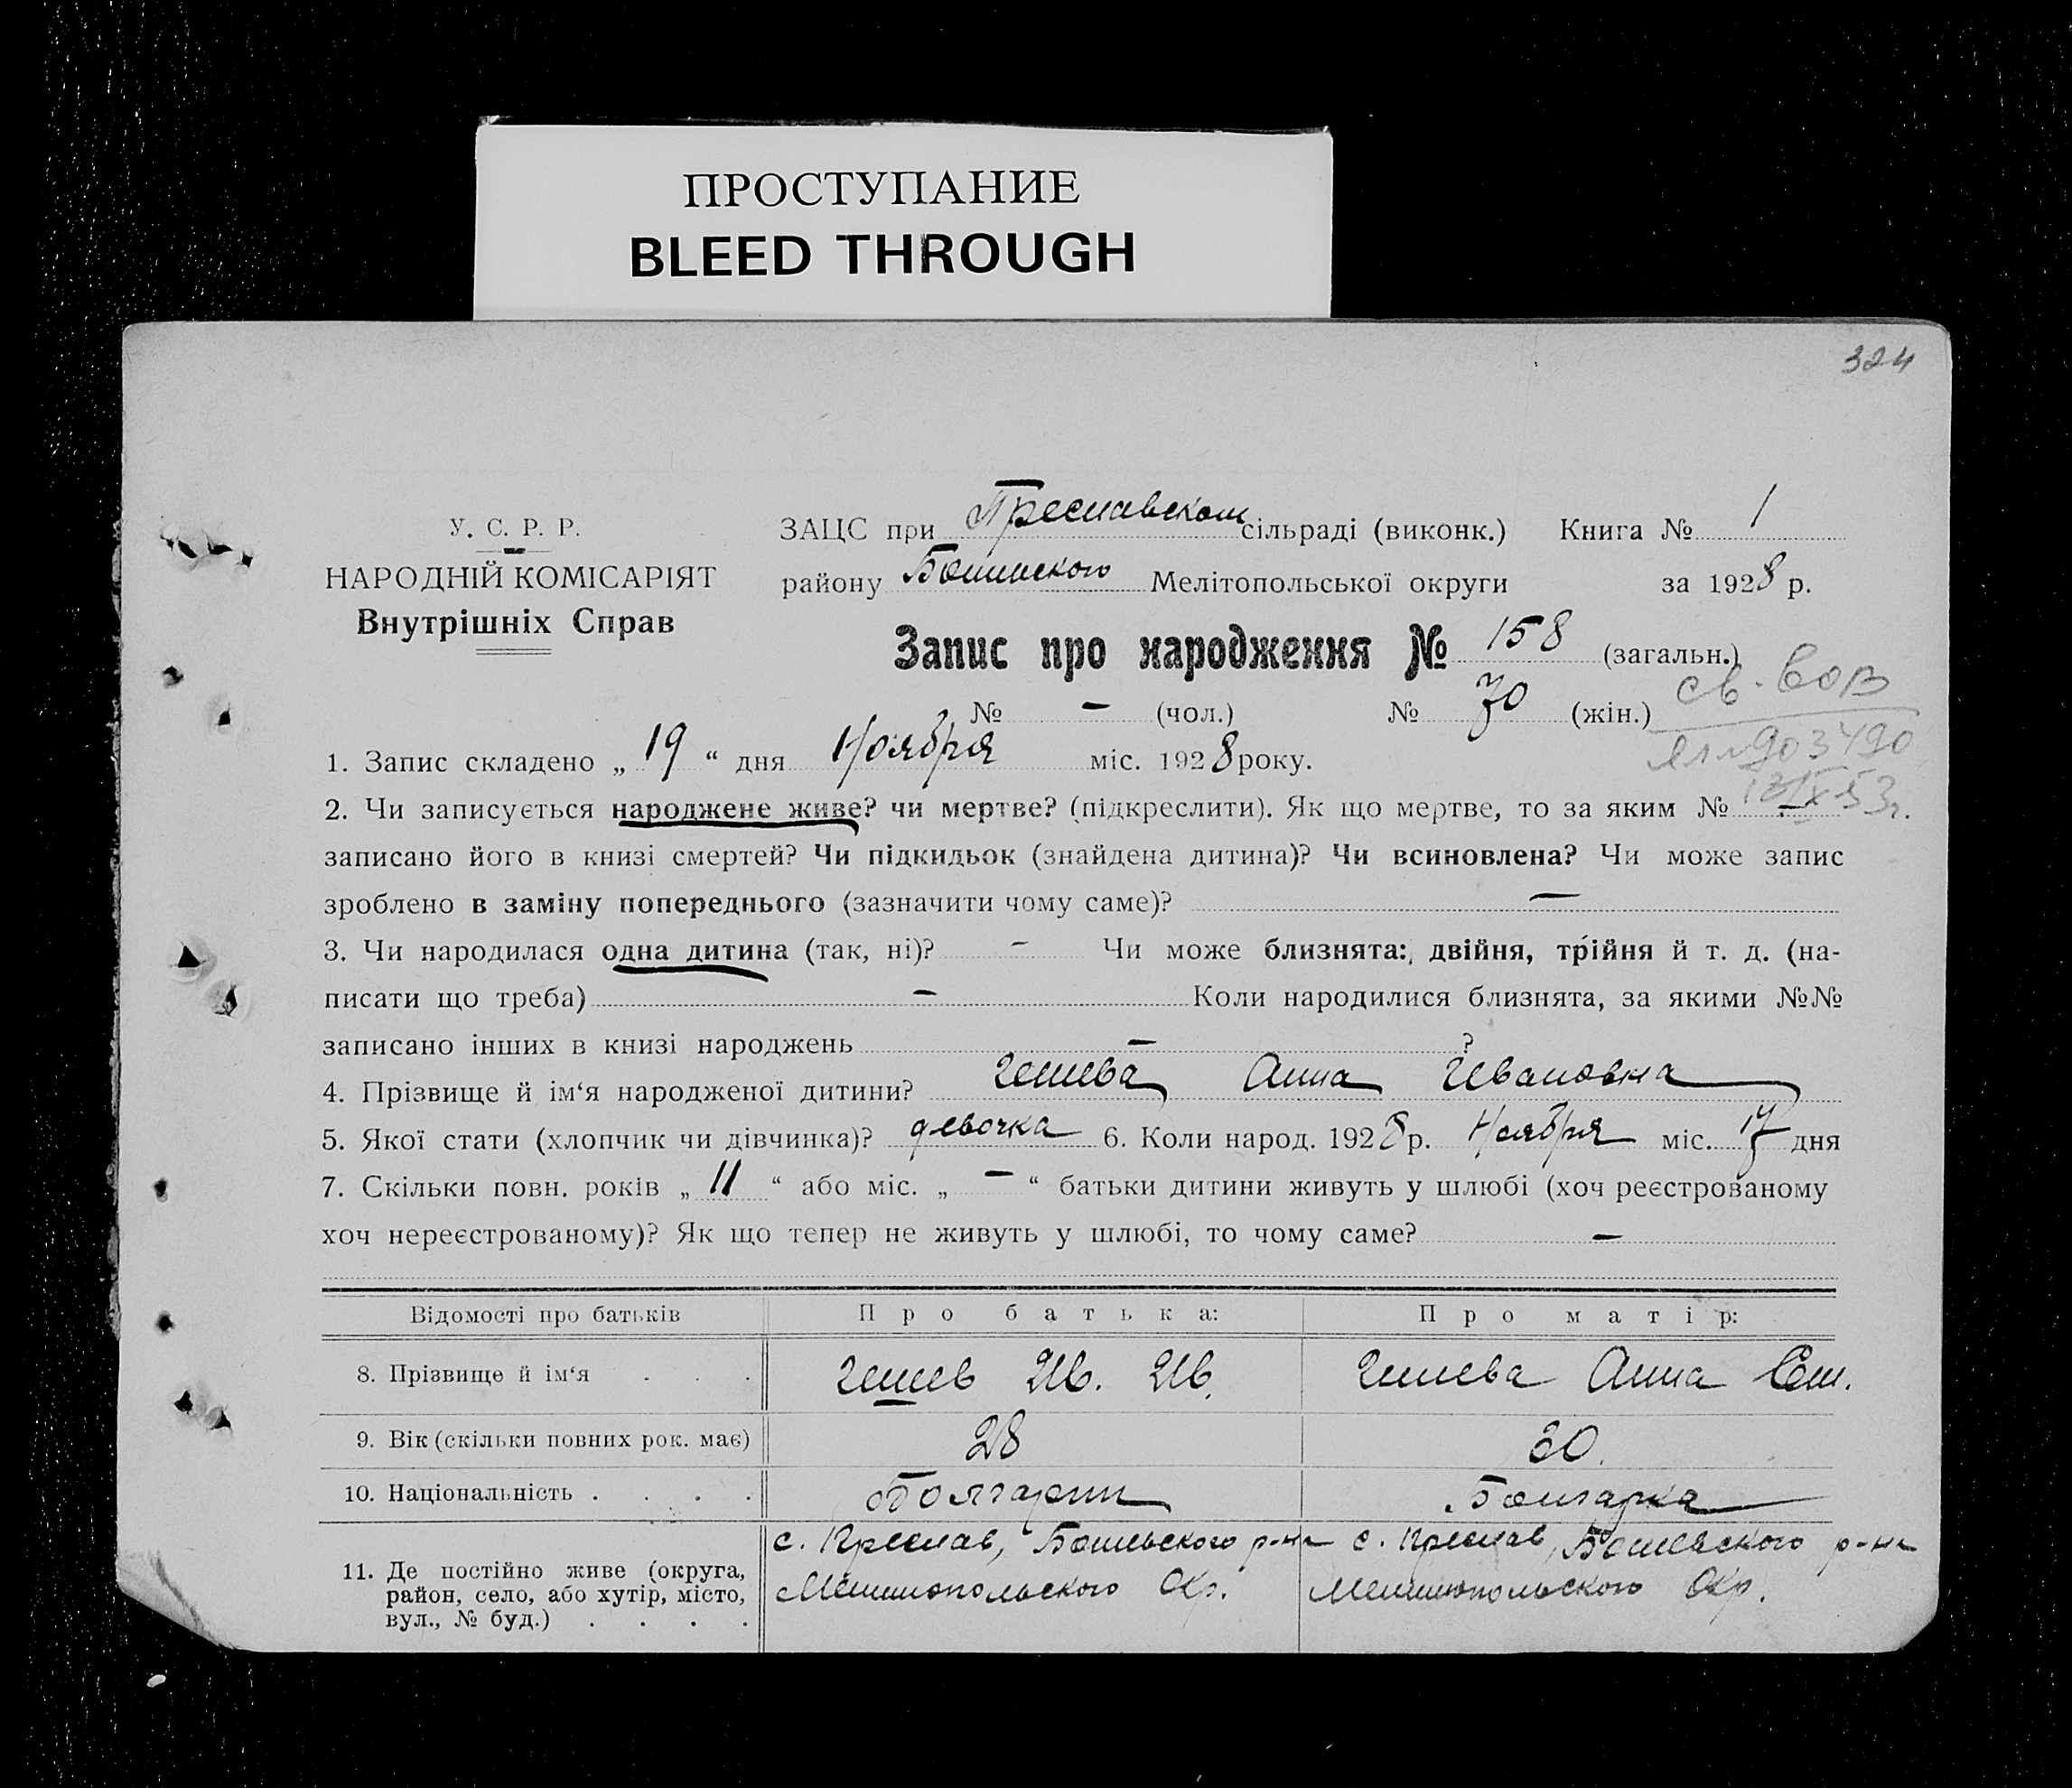 ПРОСТУПАНИЕ
BLEED THROUGH
324
У. С. Р. Р.
НАРОДНІЙ КОМІСАРІЯТ
Внутрішніх Справ
ЗАЦС при Преславском сільраді (виконк.) Книга № 1
району Мелітопольської округи за 1928 р.
Запис про народження № 158 (загальн.)
№ — (чол.) № 70 (жін.)
св. вов
903490
53г.
1. Запис складено „ 19 “ дня Ноября міс. 1928 року.
2. Чи записується народжене живе? чи мертве? (підкреслити). Як що мертве, то за яким № —
записано його в книзі смертей? Чи підкидьок (знайдена дитина)? Чи всиновлена? Чи може запис
зроблено в заміну попереднього (зазначити чому саме)? —
3. Чи народилася одна дитина (так, ні)? - Чи може близнята: двійня, трійня й т. д. (на-
писати що треба) — Коли народилися близнята, за якими №№
записано інших в книзі народжень — ?
4. Прізвище й ім‘я народженої дитини? Гешева Анна Ивановна
5. Якої стати (хлопчик чи дівчинка)? девочка 6. Коли народ. 1928 р. Ноября міс. 17 дня
7. Скільки повн. років „ 11 “ або міс. „ — “ батьки дитини живуть у шлюбі (хоч реєстрованому
хоч нереєстрованому)? Як що тепер не живуть у шлюбі, то чому саме? —
Відомості про батьків Про батька: Про матір:
8. Прізвище й ім‘я . . . Гешев Ив. Ив. Гешева Анна
9. Вік (скільки повних рок. має) 28 30.
10. Національність . . . . Болгарин Болгарка
11. Де постійно живе (округа, с. Преслав, р-на с. Преслав, р-на
район, село, або хутір, місто, Мелитопольского Окр. Мелитопольского Окр.
вул., № буд.) . . . .